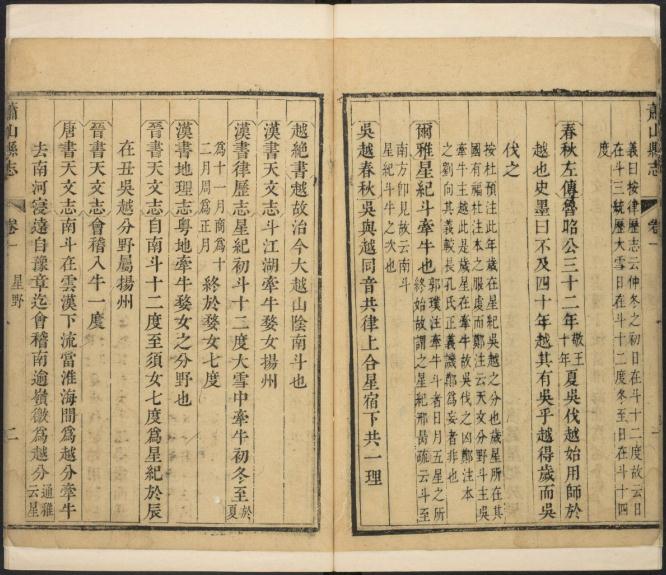 蕭山縣志
卷一
一
義曰按律歷志云仲冬之初日在斗十二度故云日
在斗三統歷大雪日在斗十二度冬至日在斗十四
度
春秋左傳魯昭公三十二年敬王十年夏吳伐越始用師於
越也史墨曰不及四十年越其有吳乎越得歲而吳
伐之
按杜預注此年歲在星紀吳越之分也歲星所在其
國有福杜注本之服虔而鄭注云天文分野斗主吳
牽牛主越此是歲星在牽牛故吳伐之凶鄭注本
之劉向其義較長孔氏正義譏鄭為妄者非也
爾雅星紀斗牽牛也郭璞注牽牛斗者日月五星之所終始故謂之星紀邢昺疏云斗至
南方仰見故云南斗
星紀斗牛之次也
吳越春秋吳與越同音共律上合星宿下共一理
越絶書越故治今大越山陰南斗也
漢書天文志斗江湖牽牛婺女揚州
漢書律歷志星紀初斗十二度大雪中牽牛初冬至於夏
為十一月商為十二月周為正月終於婺女七度
漢書地理志粤地牽牛婺女之分野也
晉書天文志自南斗十二度至須女七度為星紀於辰
在丑吳越分野屬揚州
晉書天文志會稽入牛一度
唐書天文志南斗在雲漢下流當淮海間為越分牽牛
去南河寖遠自豫章迄會稽南逾嶺徼為越分通雅云星
蕭山縣志
卷一
星野
二